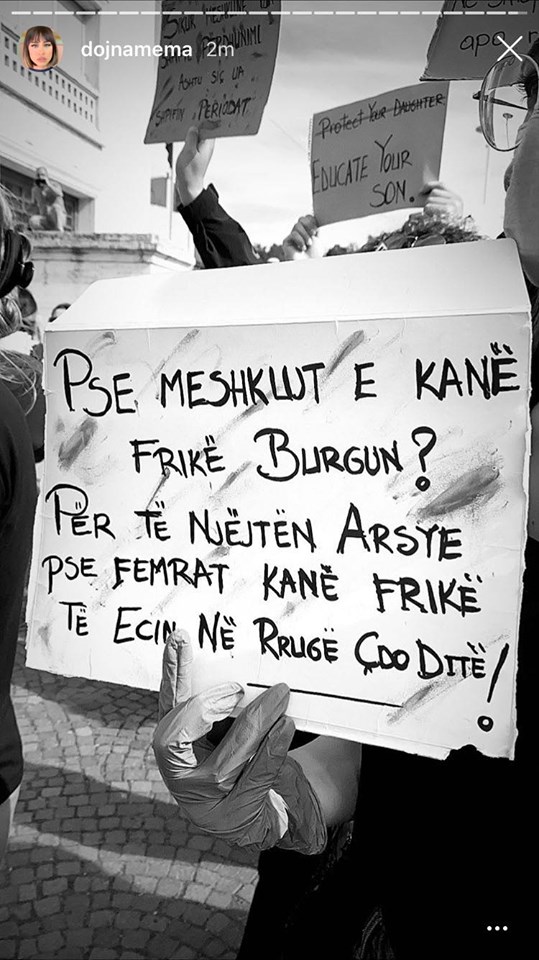 dojnamema 2m
PERËNDIMI
ASHTU SIÇ UA
PERIODAT
Protect Your DAUGHTER
EDUCATE YOUR
SON.
PSE MESHKUJT E KANË
FRIKË BURGUN?
PËR TË NJËJTËN ARSYE
PSE FEMRAT KANË FRIKË
TË ECIN NË RRUGË ÇDO DITË!